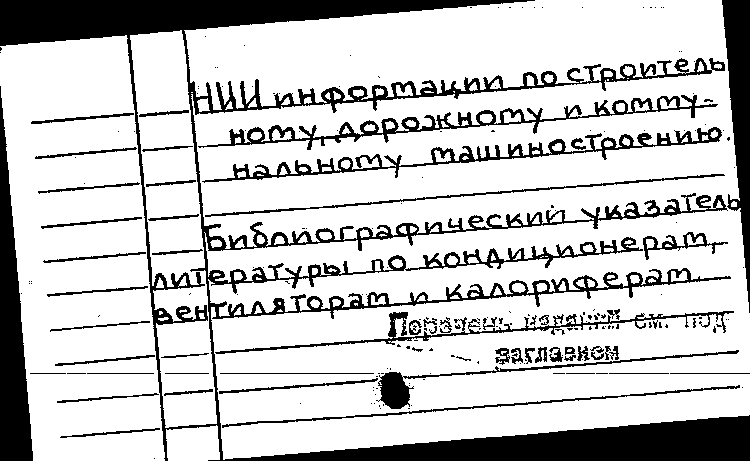 НИИ информации по строитель
ному, дорожному и комму-
нальному машиностроению.
Библиографический указатель
литературы по кондиционерам,
вентиляторам и калориферам.
Перечень изданий см. под
заглавием